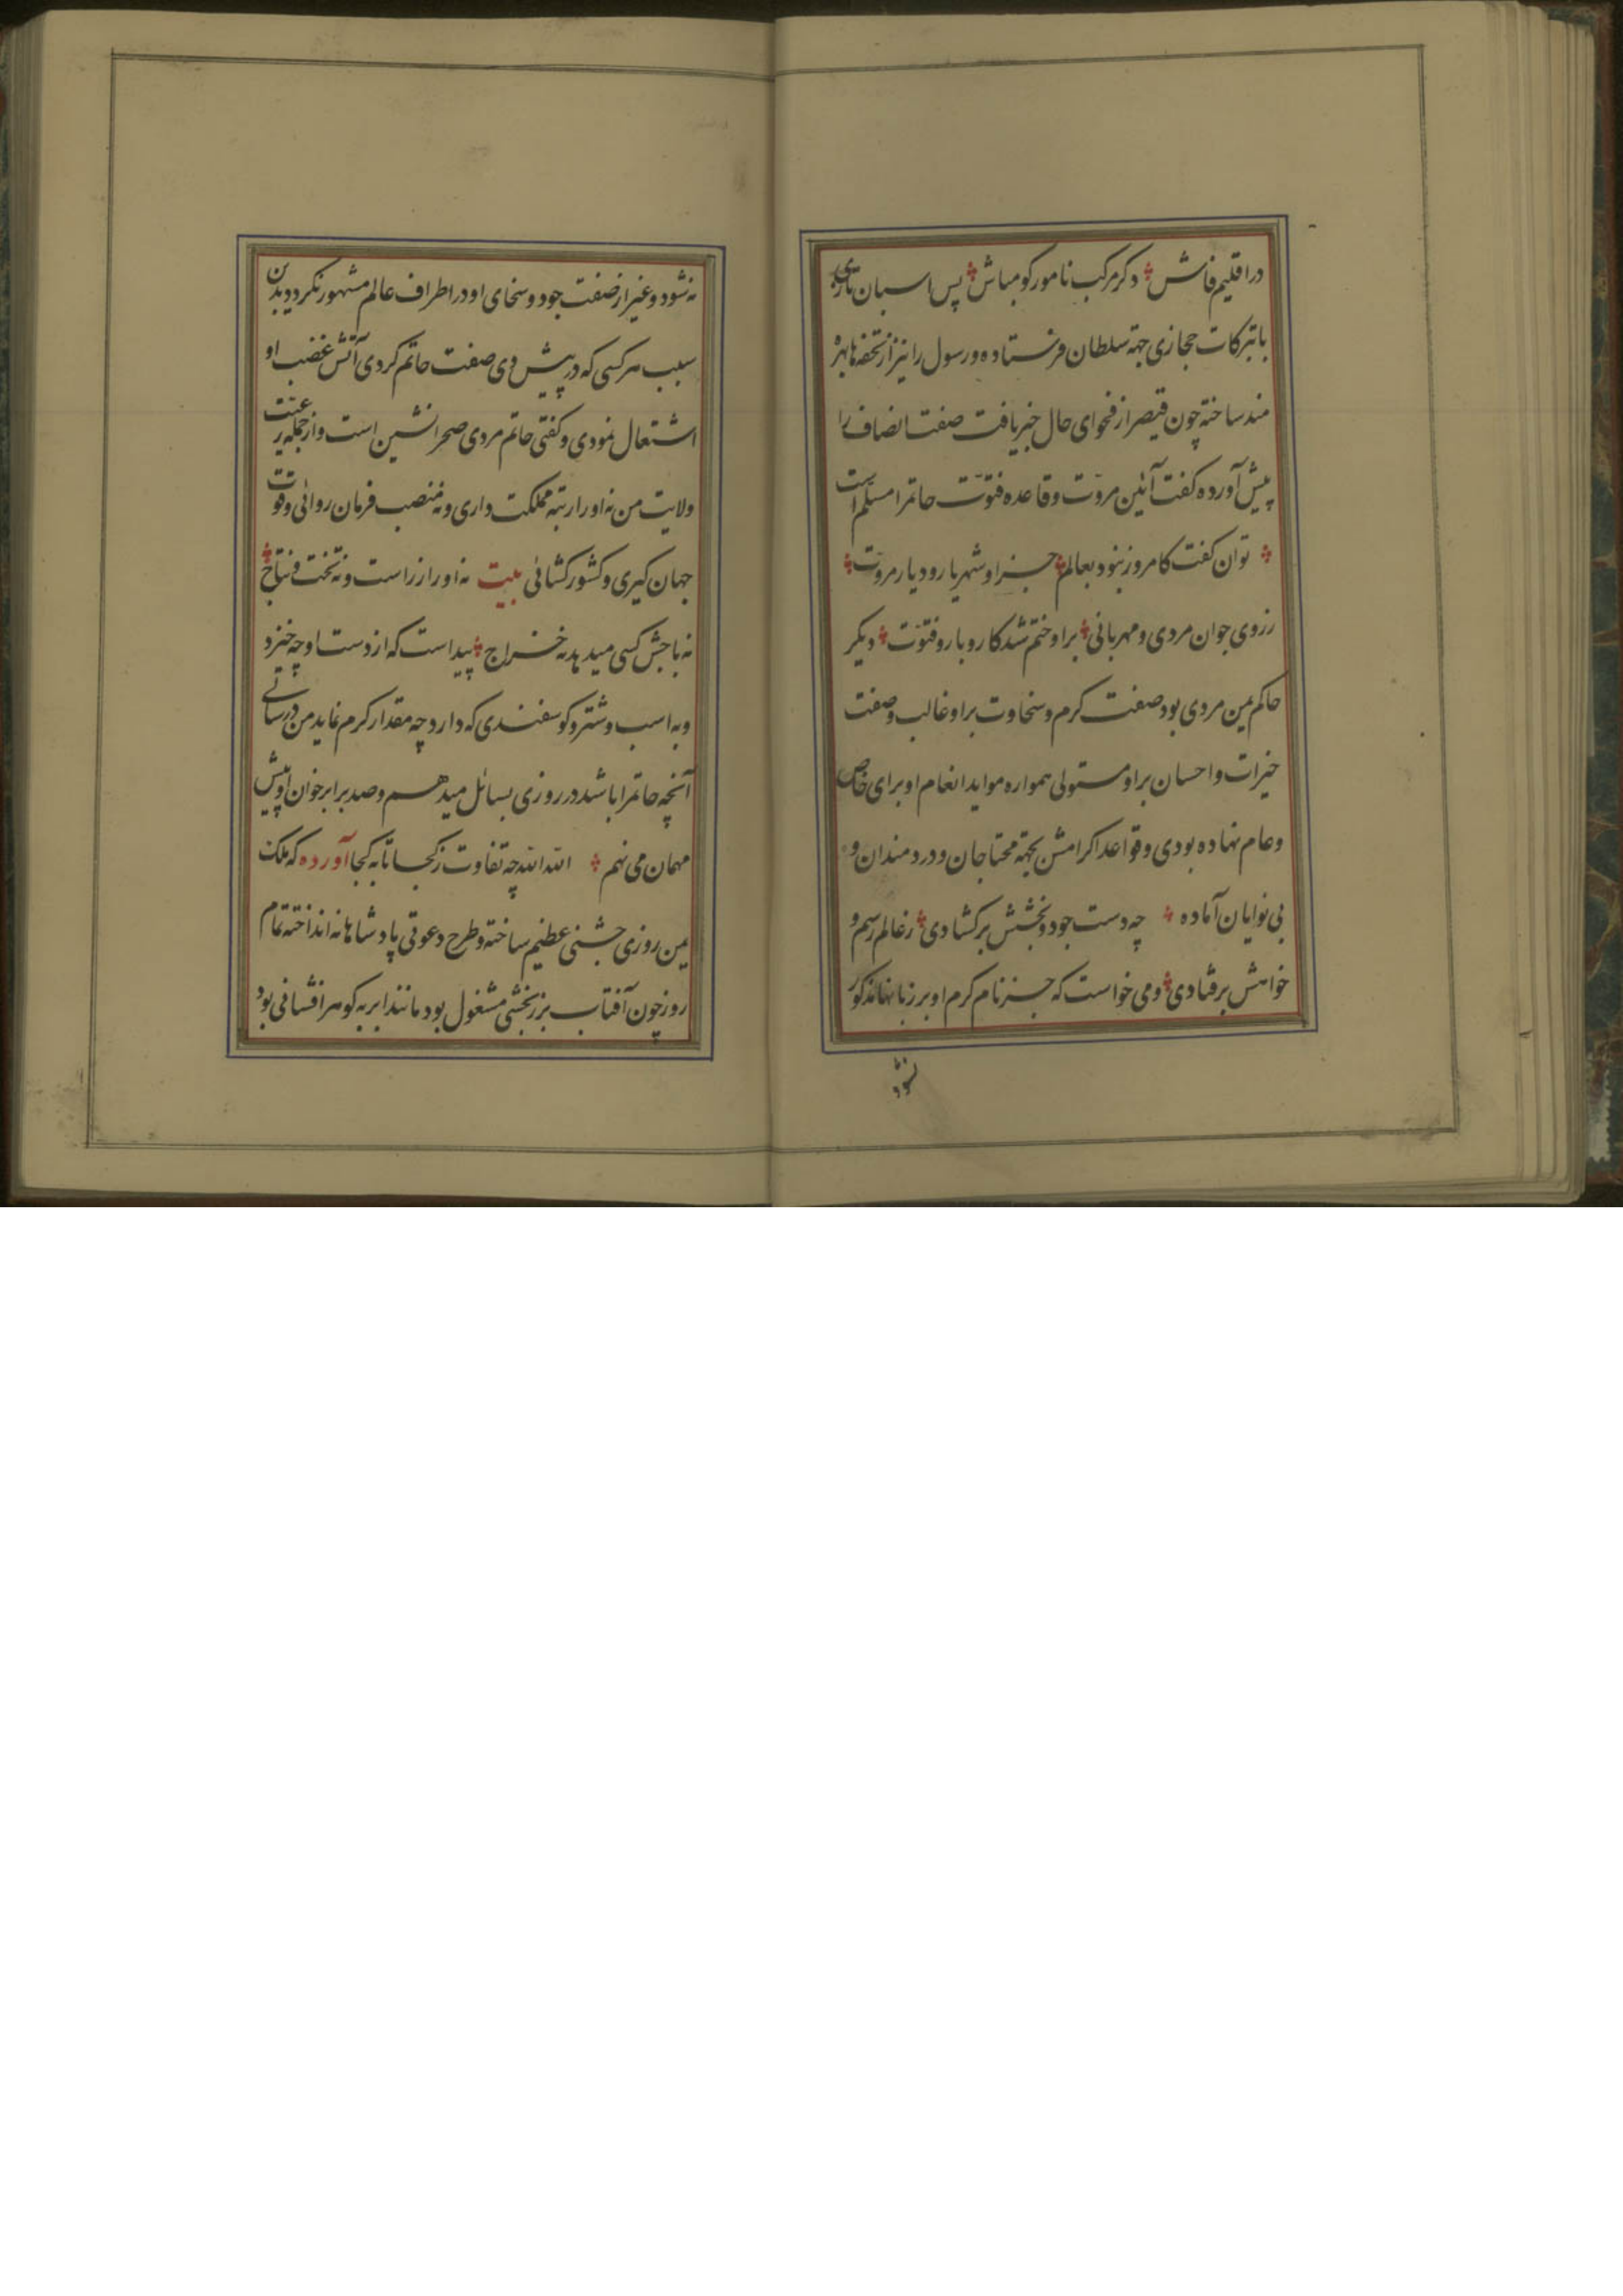 در اقلیم فاش دکر مرکب نامور کو مباش پس اسبان تازی
با تبرکات حجازی جهة سلطان فرستاده و رسول را نیز از تحفه‌ها بهره
مند ساخته چون قیصر از فحوای حال خبر یافت صفت انصاف را
پیش آورده کفت آئین مروّت و قاعده فتوّت حاتم را مسلّم است
توان کفت کامروز نبود بعالم جز او شهریار و دیار مروّت
ز روی جوان مردی و مهربانی بر او ختم شد کار و بار و فتوّت دیکر
حاکم یمن مردی بود صفت کرم و سخاوت بر او غالب و صفت
خیرات و احسان بر او مستولی همواره مواید انعام او برای خاص
و عام نهاده بودی و قواعد اکرامش بجهة محتاجان و دردمندان و
بی نوایان آماده چه دست جود و بخشش برکشادی ز عالم رسم و
خواهش برفتادی و می خواست که جز نام کرم او بر زبانها مذکور
نشود
نه نشود و غیر از صفت جود و سخای او در اطراف عالم مشهور نکردد بدین
سبب هر کسی که در پیش وی صفت حاتم کردی آتش غضب او
اشتعال نمودی و کفتی حاتم مردی صحرا نشین است و از جمله رعیّت
ولایت من نه او را رتبه مملکت داری و نه منصب فرمان روائی و قوّت
جهان کیری و کشور کشائی بیت نه او را زر است و نه تخت و نه تاج
نه باجش کسی میدهد نه خراج پیداست که از دست او چه خیزد
و به اسب و شتر و کوسفندی که دارد چه مقدار کرم نماید من در سالی
آنچه حاتم را باشد در روزی بسائل میدهم و صد برابر خوان او پیش
مهمان می نهم الله الله چه تفاوت ز کجا تا به کجا آورده که ملک
یمن روزی جشنی عظیم ساخته و طرح دعوتی پادشاهانه انداخته تمام
روز چون آفتاب بزر بخشی مشغول بود مانند ابر به کوهر افشانی بود